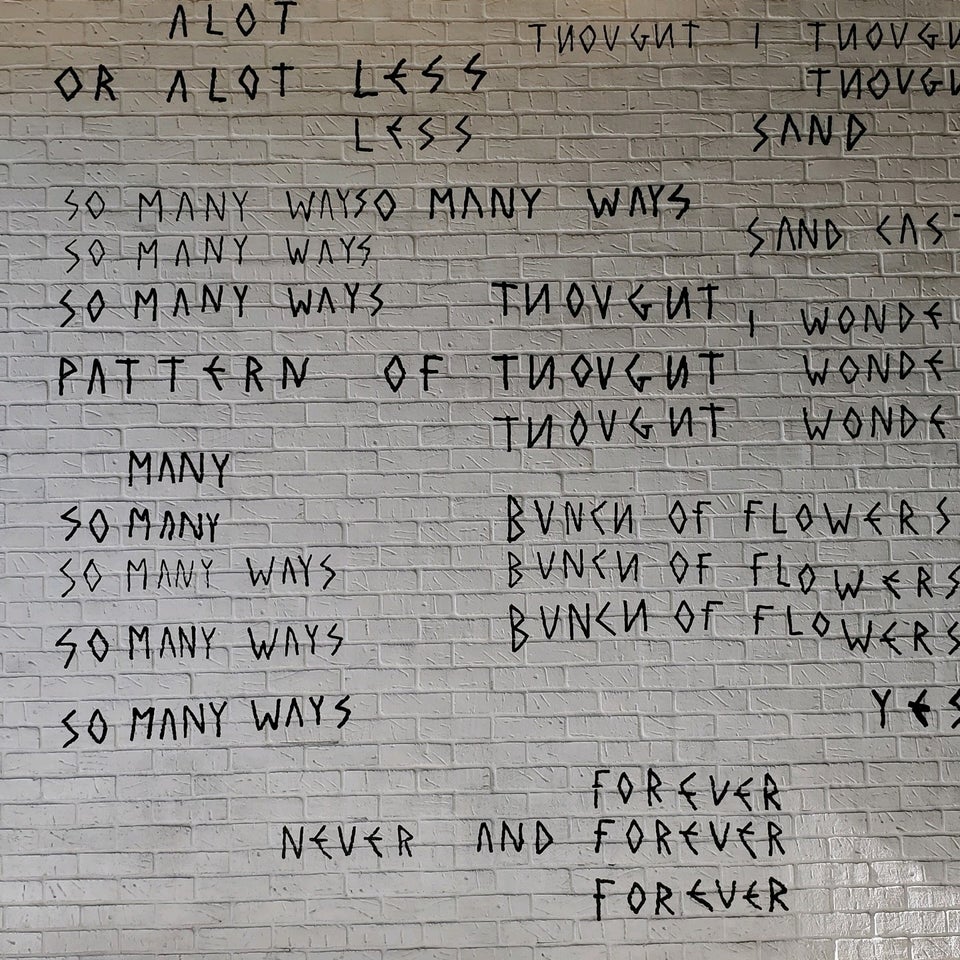 ALOT
THOUGHT I THOUGH
OR ALOT LESS
THOUGH
LESS
SAND
SO MANY WAYSO MANY WAYS
SAND CAST
SO MANY WAYS
SO MANY WAYS
THOUGHT
I WONDE
PATTERN OF THOUGHT
WONDE
THOUGHT
WONDE
MANY
SO MANY
BUNCH OF FLOWERS
SO MANY WAYS
BUNCH OF FLOWERS
SO MANY WAYS
BUNCH OF FLOWERS
SO MANY WAYS
YES
FOREVER
NEVER AND FOREVER
FOREVER